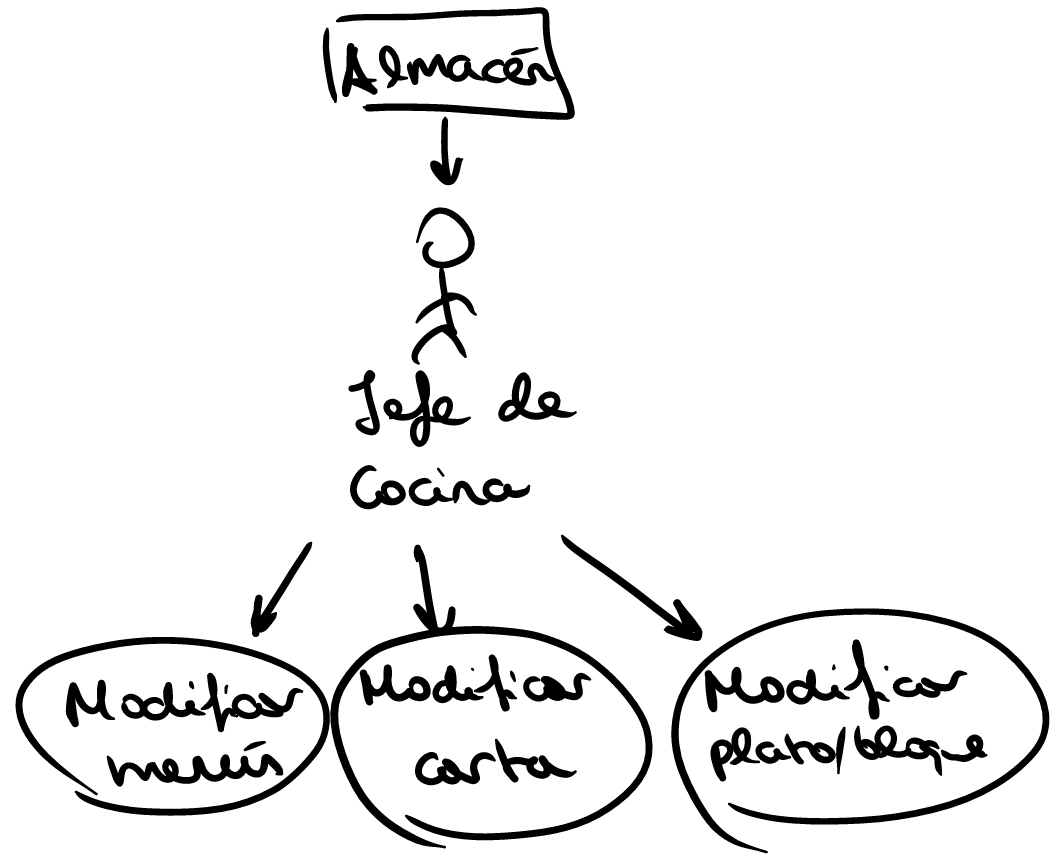 Almacén
Jefe de
Cocina
Modificar
menús
Modificar
carta
Modificar
plato/bloque